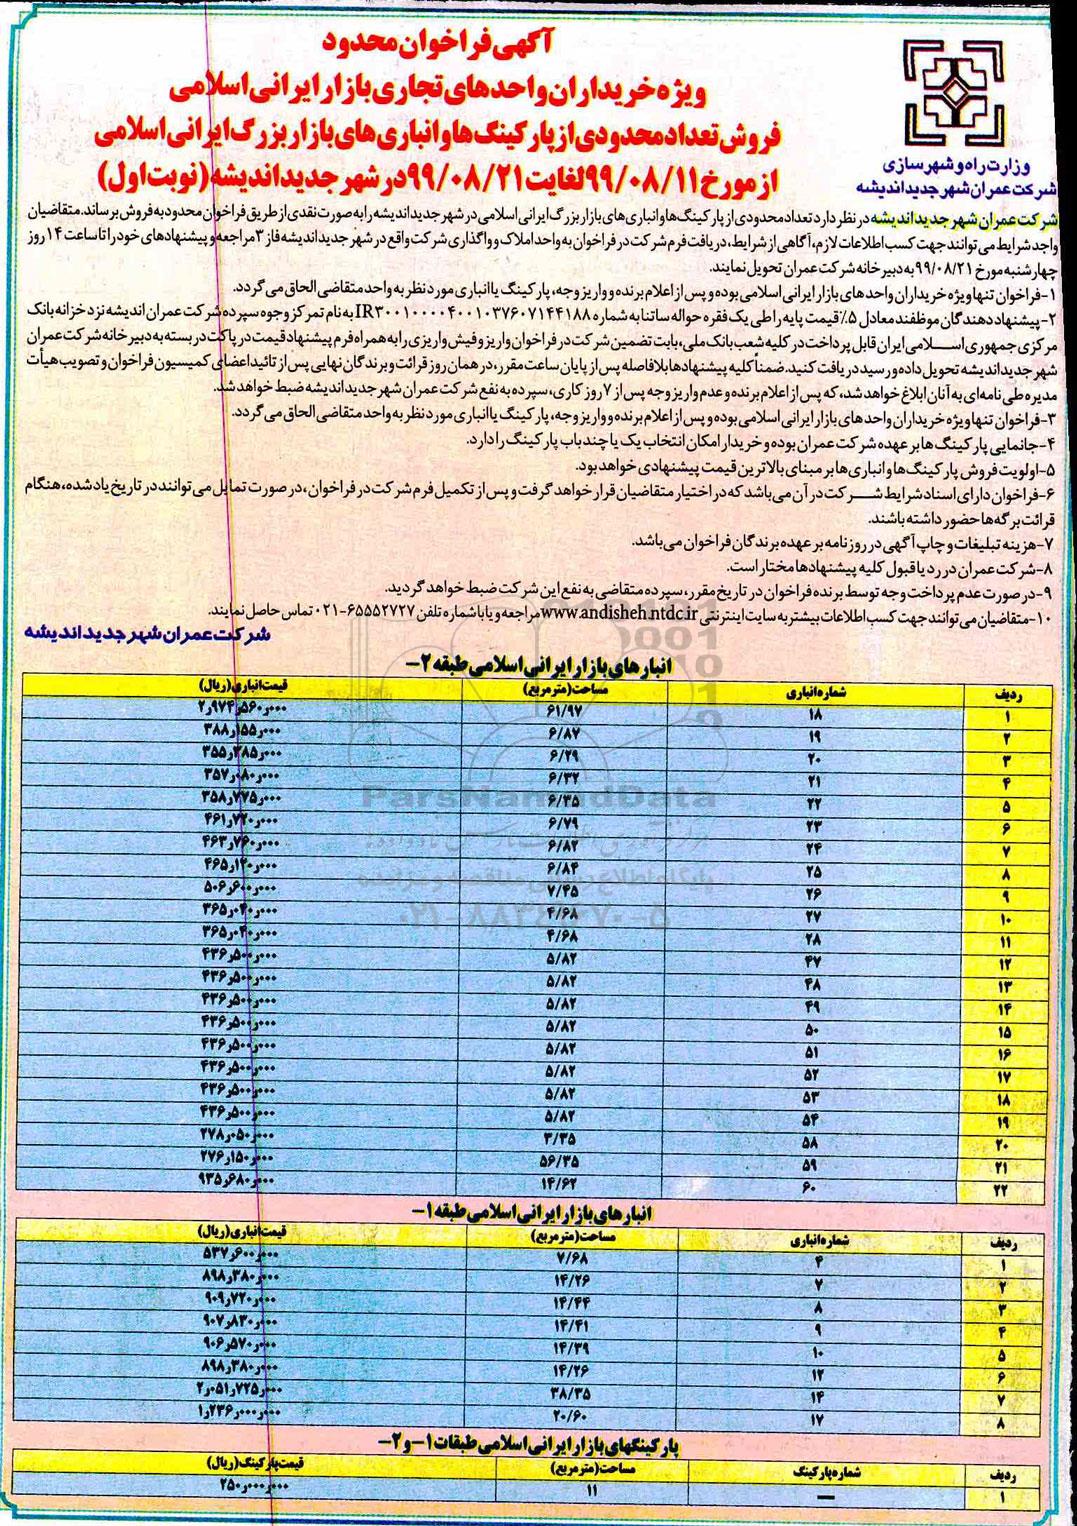 آگهی فراخوان محدود
ویژه خریداران واحدهای تجاری بازار ایرانی اسلامی
فروش تعداد محدودی از پارکینگ‌ها و انباری‌های بازار بزرگ ایرانی اسلامی
از مورخ ۹۹/۰۸/۱۱ لغایت ۹۹/۰۸/۲۱ در شهر جدید اندیشه (نوبت اول)
وزارت راه و شهرسازی
شرکت عمران شهر جدید اندیشه
شرکت عمران شهر جدید اندیشه در نظر دارد تعداد محدودی از پارکینگ‌ها و انباری های بازار بزرگ ایرانی اسلامی در شهر جدید اندیشه را به صورت نقدی از طریق فراخوان محدود به فروش برساند. متقاضیان
واجد شرایط می توانند جهت کسب اطلاعات لازم، آگاهی از شرایط، دریافت فرم شرکت در فراخوان به واحد املاک و واگذاری شرکت واقع در شهر جدید اندیشه فاز ۳ مراجعه و پیشنهادهای خود را تا ساعت ۱۴ روز
چهارشنبه مورخ ۹۹/۰۸/۲۱ به دبیرخانه شرکت عمران تحویل نمایند.
۱-فراخوان تنها ویژه خریداران واحدهای بازار ایرانی اسلامی بوده و پس از اعلام برنده و واریز وجه، پارکینگ یا انباری مورد نظر به واحد متقاضی الحاق می گردد.
۲-پیشنهاد دهندگان موظفند معادل ۵٪ قیمت پایه را طی یک فقره حواله ساتنا به شماره IR۳۰۰۱۰۰۰۰۴۰۰۱۰۳۷۶۰۷۱۴۴۱۸۸ به نام تمرکز وجوه سپرده شرکت عمران اندیشه نزد خزانه بانک
مرکزی جمهوری اسلامی ایران قابل پرداخت در کلیه شعب بانک ملی، بابت تضمین شرکت در فراخوان واریز و فیش واریزی را به همراه فرم پیشنهاد قیمت در پاکت در بسته به دبیرخانه شرکت عمران
شهر جدید اندیشه تحویل داده و رسید دریافت کنید. ضمناً کلیه پیشنهادها بلافاصله پس از پایان ساعت مقرر، در همان روز قرائت و برندگان نهایی پس از تائید اعضای کمیسیون فراخوان و تصویب هیأت
مدیره طی نامه‌ای به آنان ابلاغ خواهد شد، که پس از اعلام برنده و عدم واریز وجه پس از ۷ روز کاری، سپرده به نفع شرکت عمران شهر جدید اندیشه ضبط خواهد شد.
۳-فراخوان تنها ویژه خریداران واحدهای بازار ایرانی اسلامی بوده و پس از اعلام برنده و واریز وجه، پارکینگ یا انباری مورد نظر به واحد متقاضی الحاق می گردد.
۴-جانمایی پارکینگ ها بر عهده شرکت عمران بوده و خریدار امکان انتخاب یک یا چند باب پارکینگ را دارد.
۵-اولویت فروش پارکینگ‌ها و انباری‌ها بر مبنای بالاترین قیمت پیشنهادی خواهد بود.
۶-فراخوان دارای اسناد شرایط شرکت در آن می باشد که در اختیار متقاضیان قرار خواهد گرفت و پس از تکمیل فرم شرکت در فراخوان، در صورت تمایل می توانند در تاریخ یاد شده، هنگام
قرائت برگه‌ها حضور داشته باشند.
۷-هزینه تبلیغات و چاپ آگهی در روزنامه بر عهده برندگان فراخوان می‌باشد.
۸-شرکت عمران در رد یا قبول کلیه پیشنهادها مختار است.
۹-در صورت عدم پرداخت وجه توسط برنده فراخوان در تاریخ مقرر، سپرده متقاضی به نفع این شرکت ضبط خواهد گردید.
۱۰-متقاضیان می توانند جهت کسب اطلاعات بیشتر به سایت اینترنتی www.andisheh.ntdc.ir مراجعه و یا با شماره تلفن ۶۵۵۵۲۷۲۷-۰۲۱ تماس حاصل نمایند.
شرکت عمران شهر جدید اندیشه
انبارهای بازار ایرانی اسلامی طبقه ۲-
ردیف شماره انباری مساحت (مترمربع) قیمت انباری (ریال)
۱ ۱۸ ۶۱/۹۷ ۲ر۹۷۴ر۵۶۰ر۰۰۰
۲ ۱۹ ۶/۸۷ ۳۸۸ر۱۵۵ر۰۰۰
۳ ۲۰ ۶/۲۹ ۳۵۵ر۳۸۵ر۰۰۰
۴ ۲۱ ۶/۳۲ ۳۵۷ر۰۸۰ر۰۰۰
۵ ۲۲ ۶/۳۵ ۳۵۸ر۷۷۵ر۰۰۰
۶ ۲۳ ۶/۷۹ ۴۶۱ر۷۲۰ر۰۰۰
۷ ۲۴ ۶/۸۲ ۴۶۳ر۷۶۰ر۰۰۰
۸ ۲۵ ۶/۸۴ ۴۶۵ر۱۲۰ر۰۰۰
۹ ۲۶ ۷/۴۵ ۵۰۶ر۶۰۰ر۰۰۰
۱۰ ۲۷ ۴/۶۸ ۳۶۵ر۰۴۰ر۰۰۰
۱۱ ۲۸ ۴/۶۸ ۳۶۵ر۰۴۰ر۰۰۰
۱۲ ۴۷ ۵/۸۲ ۴۳۶ر۵۰۰ر۰۰۰
۱۳ ۴۸ ۵/۸۲ ۴۳۶ر۵۰۰ر۰۰۰
۱۴ ۴۹ ۵/۸۲ ۴۳۶ر۵۰۰ر۰۰۰
۱۵ ۵۰ ۵/۸۲ ۴۳۶ر۵۰۰ر۰۰۰
۱۶ ۵۱ ۵/۸۲ ۴۳۶ر۵۰۰ر۰۰۰
۱۷ ۵۲ ۵/۸۲ ۴۳۶ر۵۰۰ر۰۰۰
۱۸ ۵۳ ۵/۸۲ ۴۳۶ر۵۰۰ر۰۰۰
۱۹ ۵۴ ۵/۸۲ ۴۳۶ر۵۰۰ر۰۰۰
۲۰ ۵۸ ۳/۳۵ ۲۷۸ر۰۵۰ر۰۰۰
۲۱ ۵۹ ۵۶/۳۵ ۲۷۶ر۱۵۰ر۰۰۰
۲۲ ۶۰ ۱۴/۶۲ ۹۳۵ر۶۸۰ر۰۰۰
انبارهای بازار ایرانی اسلامی طبقه ۱-
ردیف شماره انباری مساحت (مترمربع) قیمت انباری (ریال)
۱ ۴ ۷/۶۸ ۵۳۷ر۶۰۰ر۰۰۰
۲ ۷ ۱۴/۲۶ ۸۹۸ر۳۸۰ر۰۰۰
۳ ۸ ۱۴/۴۴ ۹۰۹ر۷۲۰ر۰۰۰
۴ ۹ ۱۴/۴۱ ۹۰۷ر۸۳۰ر۰۰۰
۵ ۱۰ ۱۴/۳۹ ۹۰۶ر۵۷۰ر۰۰۰
۶ ۱۲ ۱۴/۲۶ ۸۹۸ر۳۸۰ر۰۰۰
۷ ۱۴ ۳۸/۳۵ ۲ر۰۵۱ر۷۲۵ر۰۰۰
۸ ۱۷ ۲۰/۶۰ ۱ر۲۳۶ر۰۰۰ر۰۰۰
پارکینگهای بازار ایرانی اسلامی طبقات ۱- و ۲-
ردیف شماره پارکینگ مساحت (مترمربع) قیمت پارکینگ (ریال)
۱ — ۱۱ ۲۵۰ر۰۰۰ر۰۰۰
ParsNamadData
پایگاه اطلاع رسانی مناقصه و مزایده